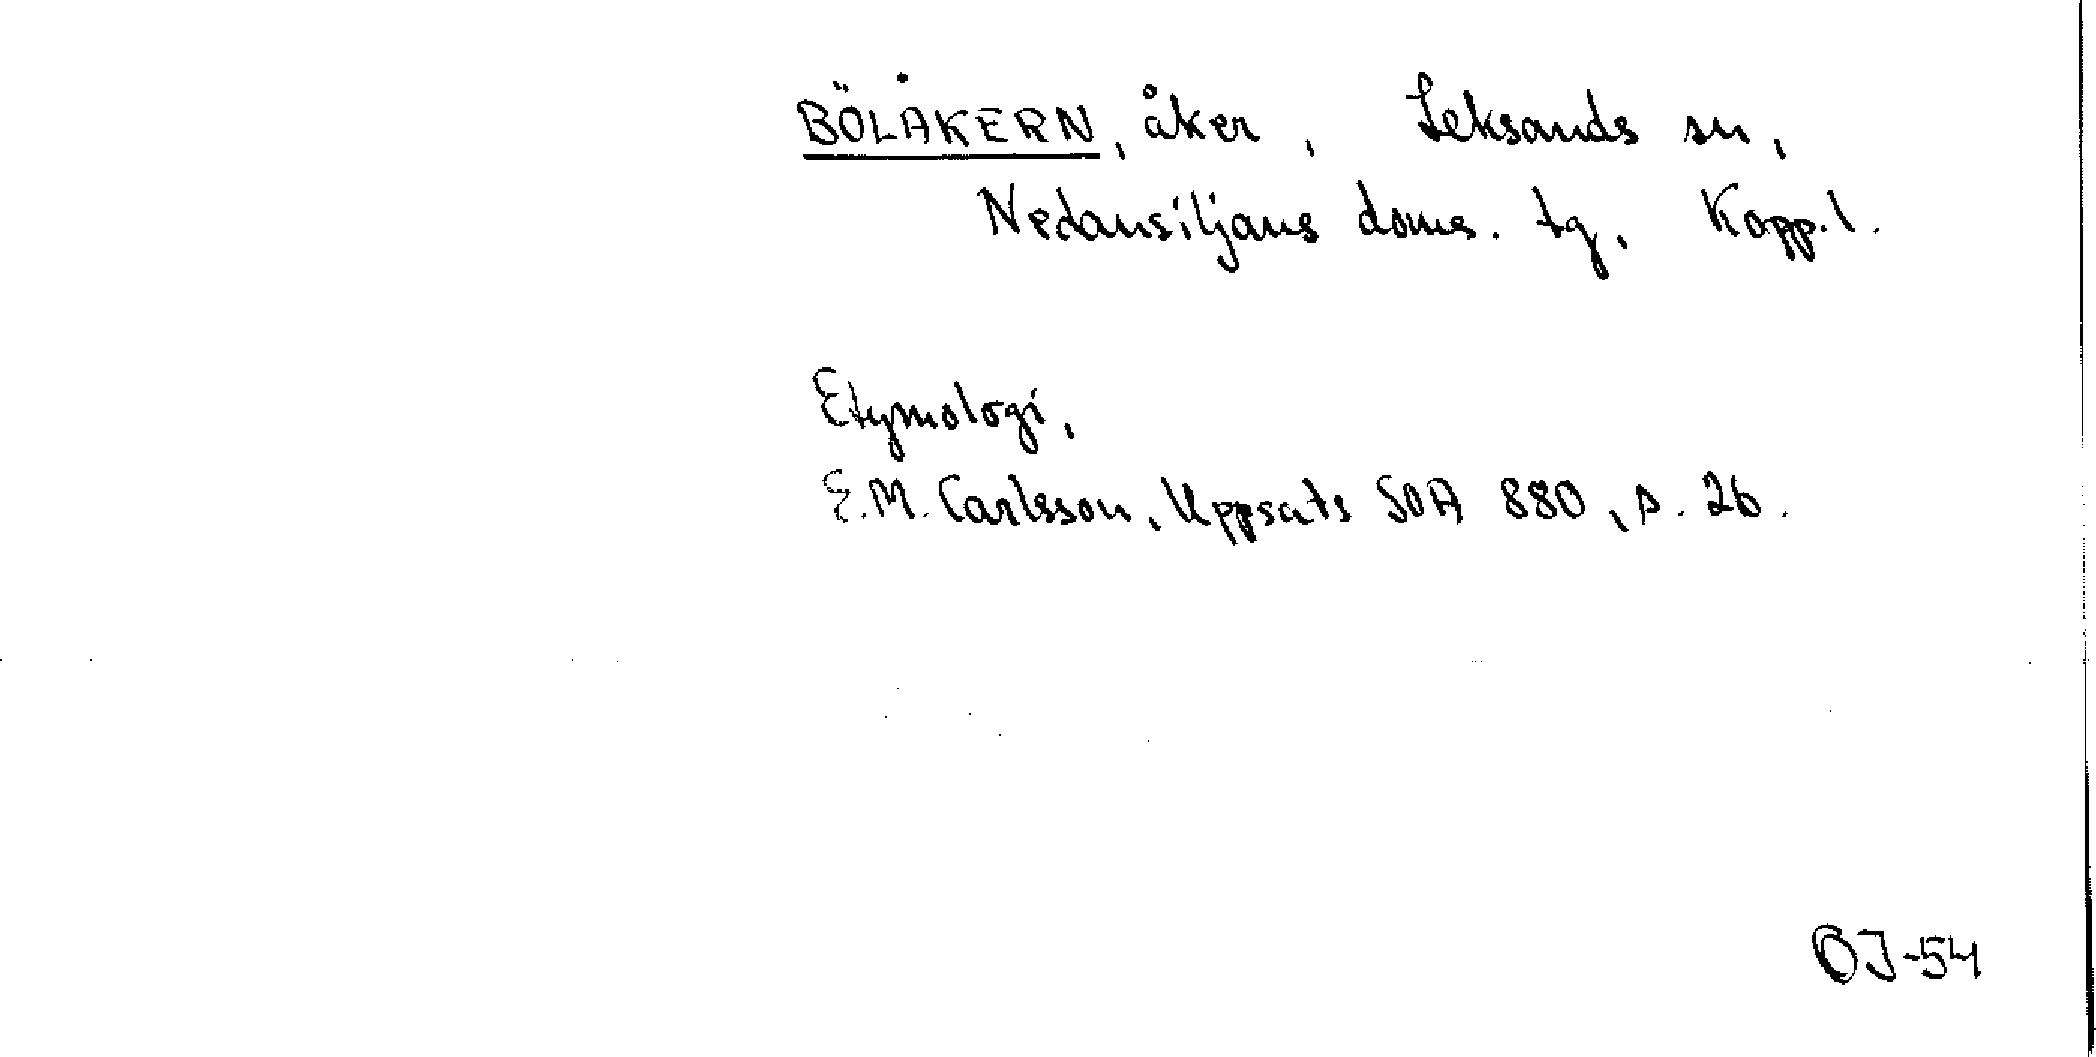 BÖLÅKERN, åker, Leksands sn,
Nedansiljans doms. tg, Kopp.l.
Etymologi,
E.M. Carlsson, Uppsats SOA 880, s. 26.
OJ-54